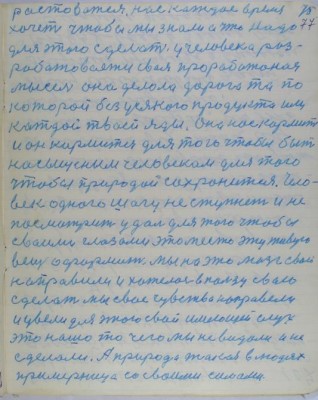 растоваться. нас каждае время 75
хочет чтобы мы знали што надо 77
для этого сделать. у человека раз-
работовояжи свая проработоная
мысля она делола дорога та по
которой без усякого продукта или
каждой твоей яды. Она нас кормит
и он кормится для того чтобы быт
насыщеным человекам для того
чтобы природай сохронится. Чело-
век одного шагу не ступнет и не
посмотрит удал для того чтобы
своими глазами. это место эту живую
вещ оформит. мы на это мозг свой
направили и хотело в ползу сваю
сделат мы свое чувства направели
и увели для этого свой имеющей слух
это нашо то чего мы не видали и не
сделоли. А природа такая в людях
примерница со своими силами.